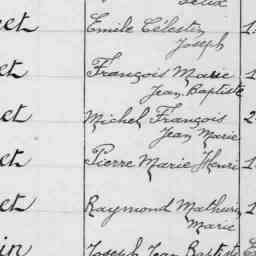 Félix
et Emile Célestin 1
Joseph
et François Marie 1
Jean Baptiste
et Michel François 2
Jean Marie
et Pierre Marie Henri 1
et Raymond Mathurin 1
Marie
in Joseph Jean Baptiste